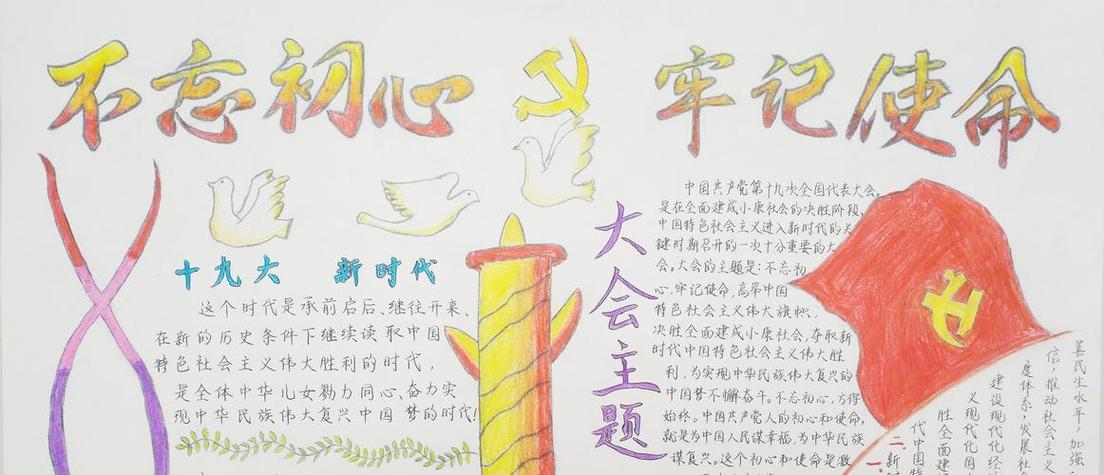 不忘初心 牢记使命
十九大 新时代
这个时代是承前启后、继往开来、
在新的历史条件下继续读取中国
特色社会主义伟大胜利的时代,
是全体中华儿女勠力同心、奋力实
现中华民族伟大复兴中国梦的时代!
大会主题
中国共产党第十九次全国代表大会,
是在全面建成小康社会的决胜阶段、
中国特色社会主义进入新时代的关
键时期召开的一次十分重要的大
会。大会的主题是:不忘初
心,牢记使命,高举中国
特色社会主义伟大旗帜,
决胜全面建成小康社会,夺取新
时代中国特色社会主义伟大胜
利,为实现中华民族伟大复兴的
中国梦不懈奋斗。不忘初心,方得
始终。中国共产党人的初心和使命,
就是为中国人民谋幸福,为中华民族
谋复兴。这个初心和使命是激
善民生水平,加强
信,推动社会主
度体系,发展社
建设现代化经
义现代化国
胜全面建
代中国特
二、新
一、